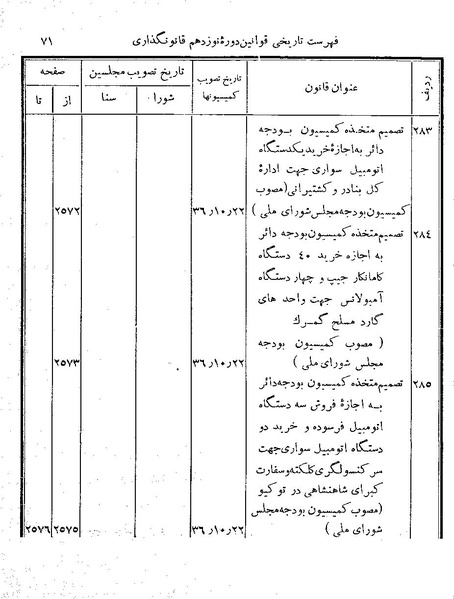 فهرست تاریخی قوانین دورهٔ نوزدهم قانونگذاری ۷۱
ردیف
عنوان قانون
تاریخ تصویب کمیسیونها
تاریخ تصویب مجلسین
شورا سنا
صفحه
از تا
۲۸۳ تصمیم متخذه کمیسیون بودجه
دائر به اجازهٔ خرید یکدستگاه
اتومبیل سواری جهت ادارهٔ
کل بنادر و کشتیرانی (مصوب
کمیسیون بودجه مجلس شورای ملی) ۳۶٫۱۰٫۲۲ ۲۵۷۲
۲۸۴ تصمیم متخذه کمیسیون بودجه دائر
به اجازه خرید ۴۰ دستگاه
کامانکار جیپ و چهار دستگاه
آمبولانس جهت واحد های
گارد مسلح گمرک
( مصوب کمیسیون بودجه
مجلس شورای ملی ) ۳۶٫۱۰٫۲۲ ۲۵۷۳
۲۸۵ تصمیم متخذه کمیسیون بودجه دائر
به اجازهٔ فروش سه دستگاه
اتومبیل فرسوده و خرید دو
دستگاه اتومبیل سواری جهت
سرکنسولگری کلکته و سفارت
کبرای شاهنشاهی در توکیو
(مصوب کمیسیون بودجه مجلس
شورای ملی ) ۳۶٫۱۰٫۲۲ ۲۵۷۵ ۲۵۷۶